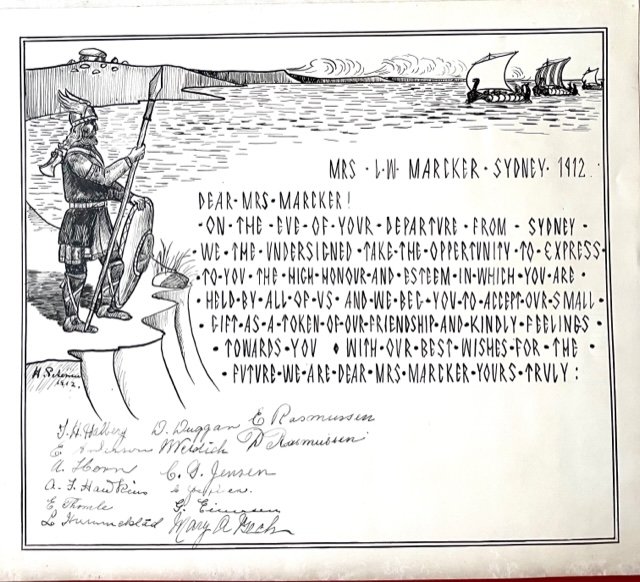 MRS · L·W· MARCKER · SYDNEY · 1912
DEAR · MRS · MARCKER!
· ON · THE · EVE · OF · YOUR · DEPARTURE · FROM · SYDNEY ·
· WE · THE · UNDERSIGNED · TAKE · THE · OPPERTUNITY · TO · EXPRESS ·
· TO · YOU · THE · HIGH · HONOUR · AND · ESTEEM · IN · WHICH · YOU · ARE ·
· HELD · BY · ALL · OF · US · AND · WE · BEG · YOU · TO · ACCEPT · OUR · SMALL ·
· GIFT · AS · A · TOKEN · OF · OUR · FRIENDSHIP · AND · KINDLY · FEELINGS ·
· TOWARDS · YOU ♦ WITH · OUR · BEST · WISHES · FOR · THE ·
· FUTURE · WE · ARE · DEAR · MRS · MARCKER · YOURS · TRULY :
1912.
D. Duggan E Rasmussen
D Rasmussen
A. Horn C. G. Jensen
A. J. Hawkins
E. Thomle
Mary A